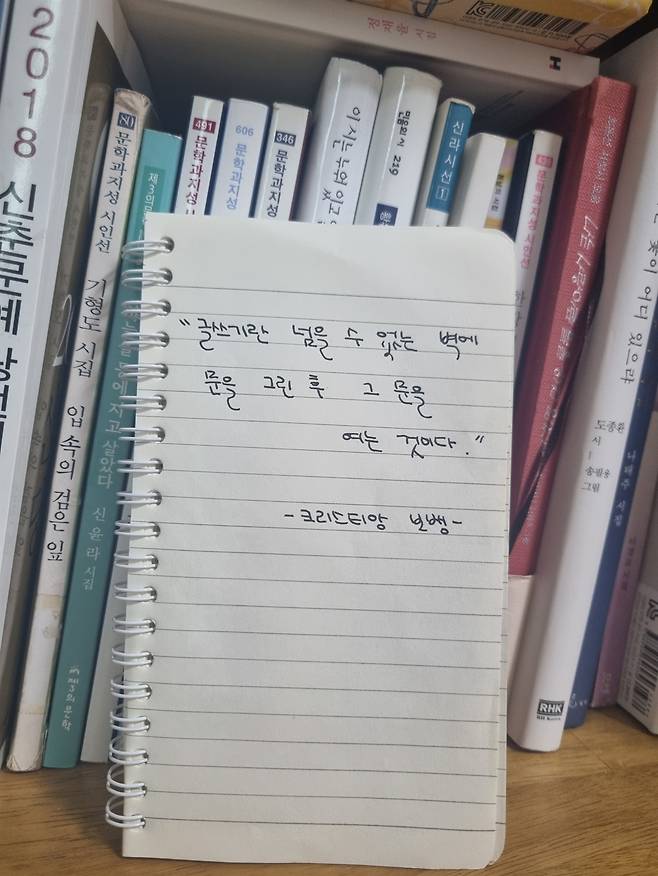 정재율 시집
2018 신춘문예
80 문학과지성 시인선 기형도 시집 입 속의 검은 잎
제3의
에 지고 살았다 신윤라 시집
제3의문학
491 문학과지성
606 문학과지성
346 문학과지성
이제는 누워 있고
민음의 시 219
신라시선 1
문학과지성 시인선
꽃이 어디 있으랴
도종환
시
송필용
그림
나태주 시집
RHK
RHK Korea
"글쓰기란 넘을 수 없는 벽에
문을 그린 후 그 문을
여는 것이다."
-크리스티앙 보뱅-